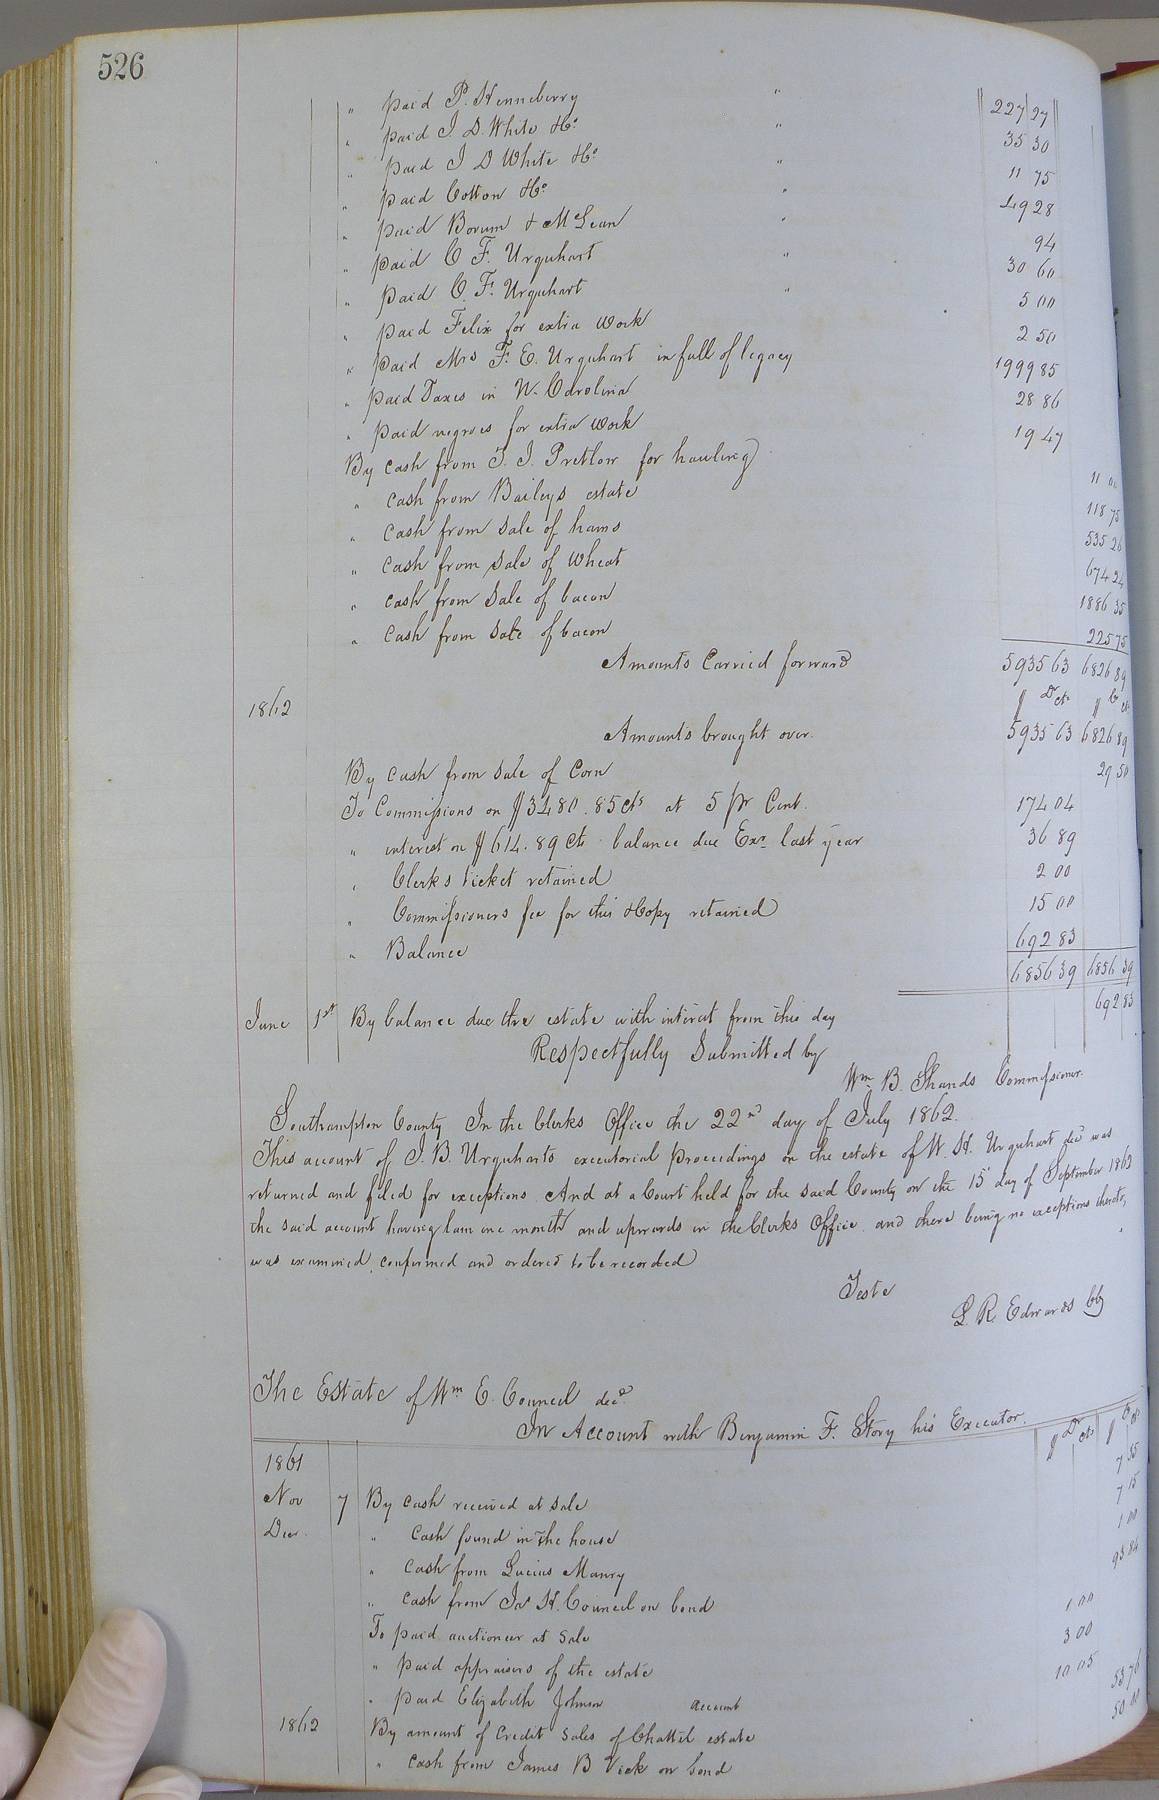 526
" paid P. Henneberry " 227 27
" paid J. D. White &Co " 35 30
" paid J D White &Co " 11 75
" paid Cotton &Co " 49 28
" paid Borum & McLean " 94
" paid C F. Urquhart " 30 60
" paid C. F. Urquhart " 5 00
" paid Felix for extra work 2 50
" paid Mrs F. E. Urquhart in full of legacy 1999 85
" paid Taxes in N. Carolina 28 86
" paid negroes for extra work 19 47
By cash from T. J. Pretlow for hauling 11 00
" cash from Baileys estate 118 75
" cash from sale of hams 535 26
" cash from sale of wheat 674 24
" cash from sale of bacon 1886 35
" cash from sale of bacon 225 75
Amounts Carried forward 5935 63 6826 89
1862 $ Dr cts $ Cr cts
Amounts brought over. 5935 63 6826 89
By cash from sale of Corn 29 50
To Commissions on $3480.85cts at 5 pr Cent. 174 04
" interest on $614.89 cts balance due Exr last year 36 89
" Clerks ticket retained 2 00
" Commissioners fee for this &Copy retained 15 00
" Balance 692 83
6856 39 6856 39
June 1st By balance due the estate with interest from this day 692 83
Respectfully Submitted by
Wm B. Shands Commissioner.
Southampton County In the Clerks Office the 22nd day of July 1862.
This account of J. B. Urquharts executorial proceedings on the estate of W. H. Urquhart decd was
returned and filed for exceptions. And at a Court held for the said County on the 15 day of September 1862
the said account having lain one month and upwards in the Clerks Office and there being no exceptions thereto,
was examined, confirmed and ordered to be recorded
Teste
L. R. Edwards CC
The Estate of Wm E. Council decd
In Account with Benjamin F. Story his Executor.
1861 $ Dr cts $ Cr cts
Nov 7 By cash received at sale 7 55
Dec. " Cash found in the house 7 15
" cash from Lucius Manry 1 00
" cash from Jas H. Council on bond 93 84
To paid auctioneer at sale 1 00
" paid appraisers of the estate 3 00
" paid Elizabeth Johnson account 10 05
1862 By amount of Credit sales of Chattel estate 53 76
" cash from James B Vick on bond 50 00